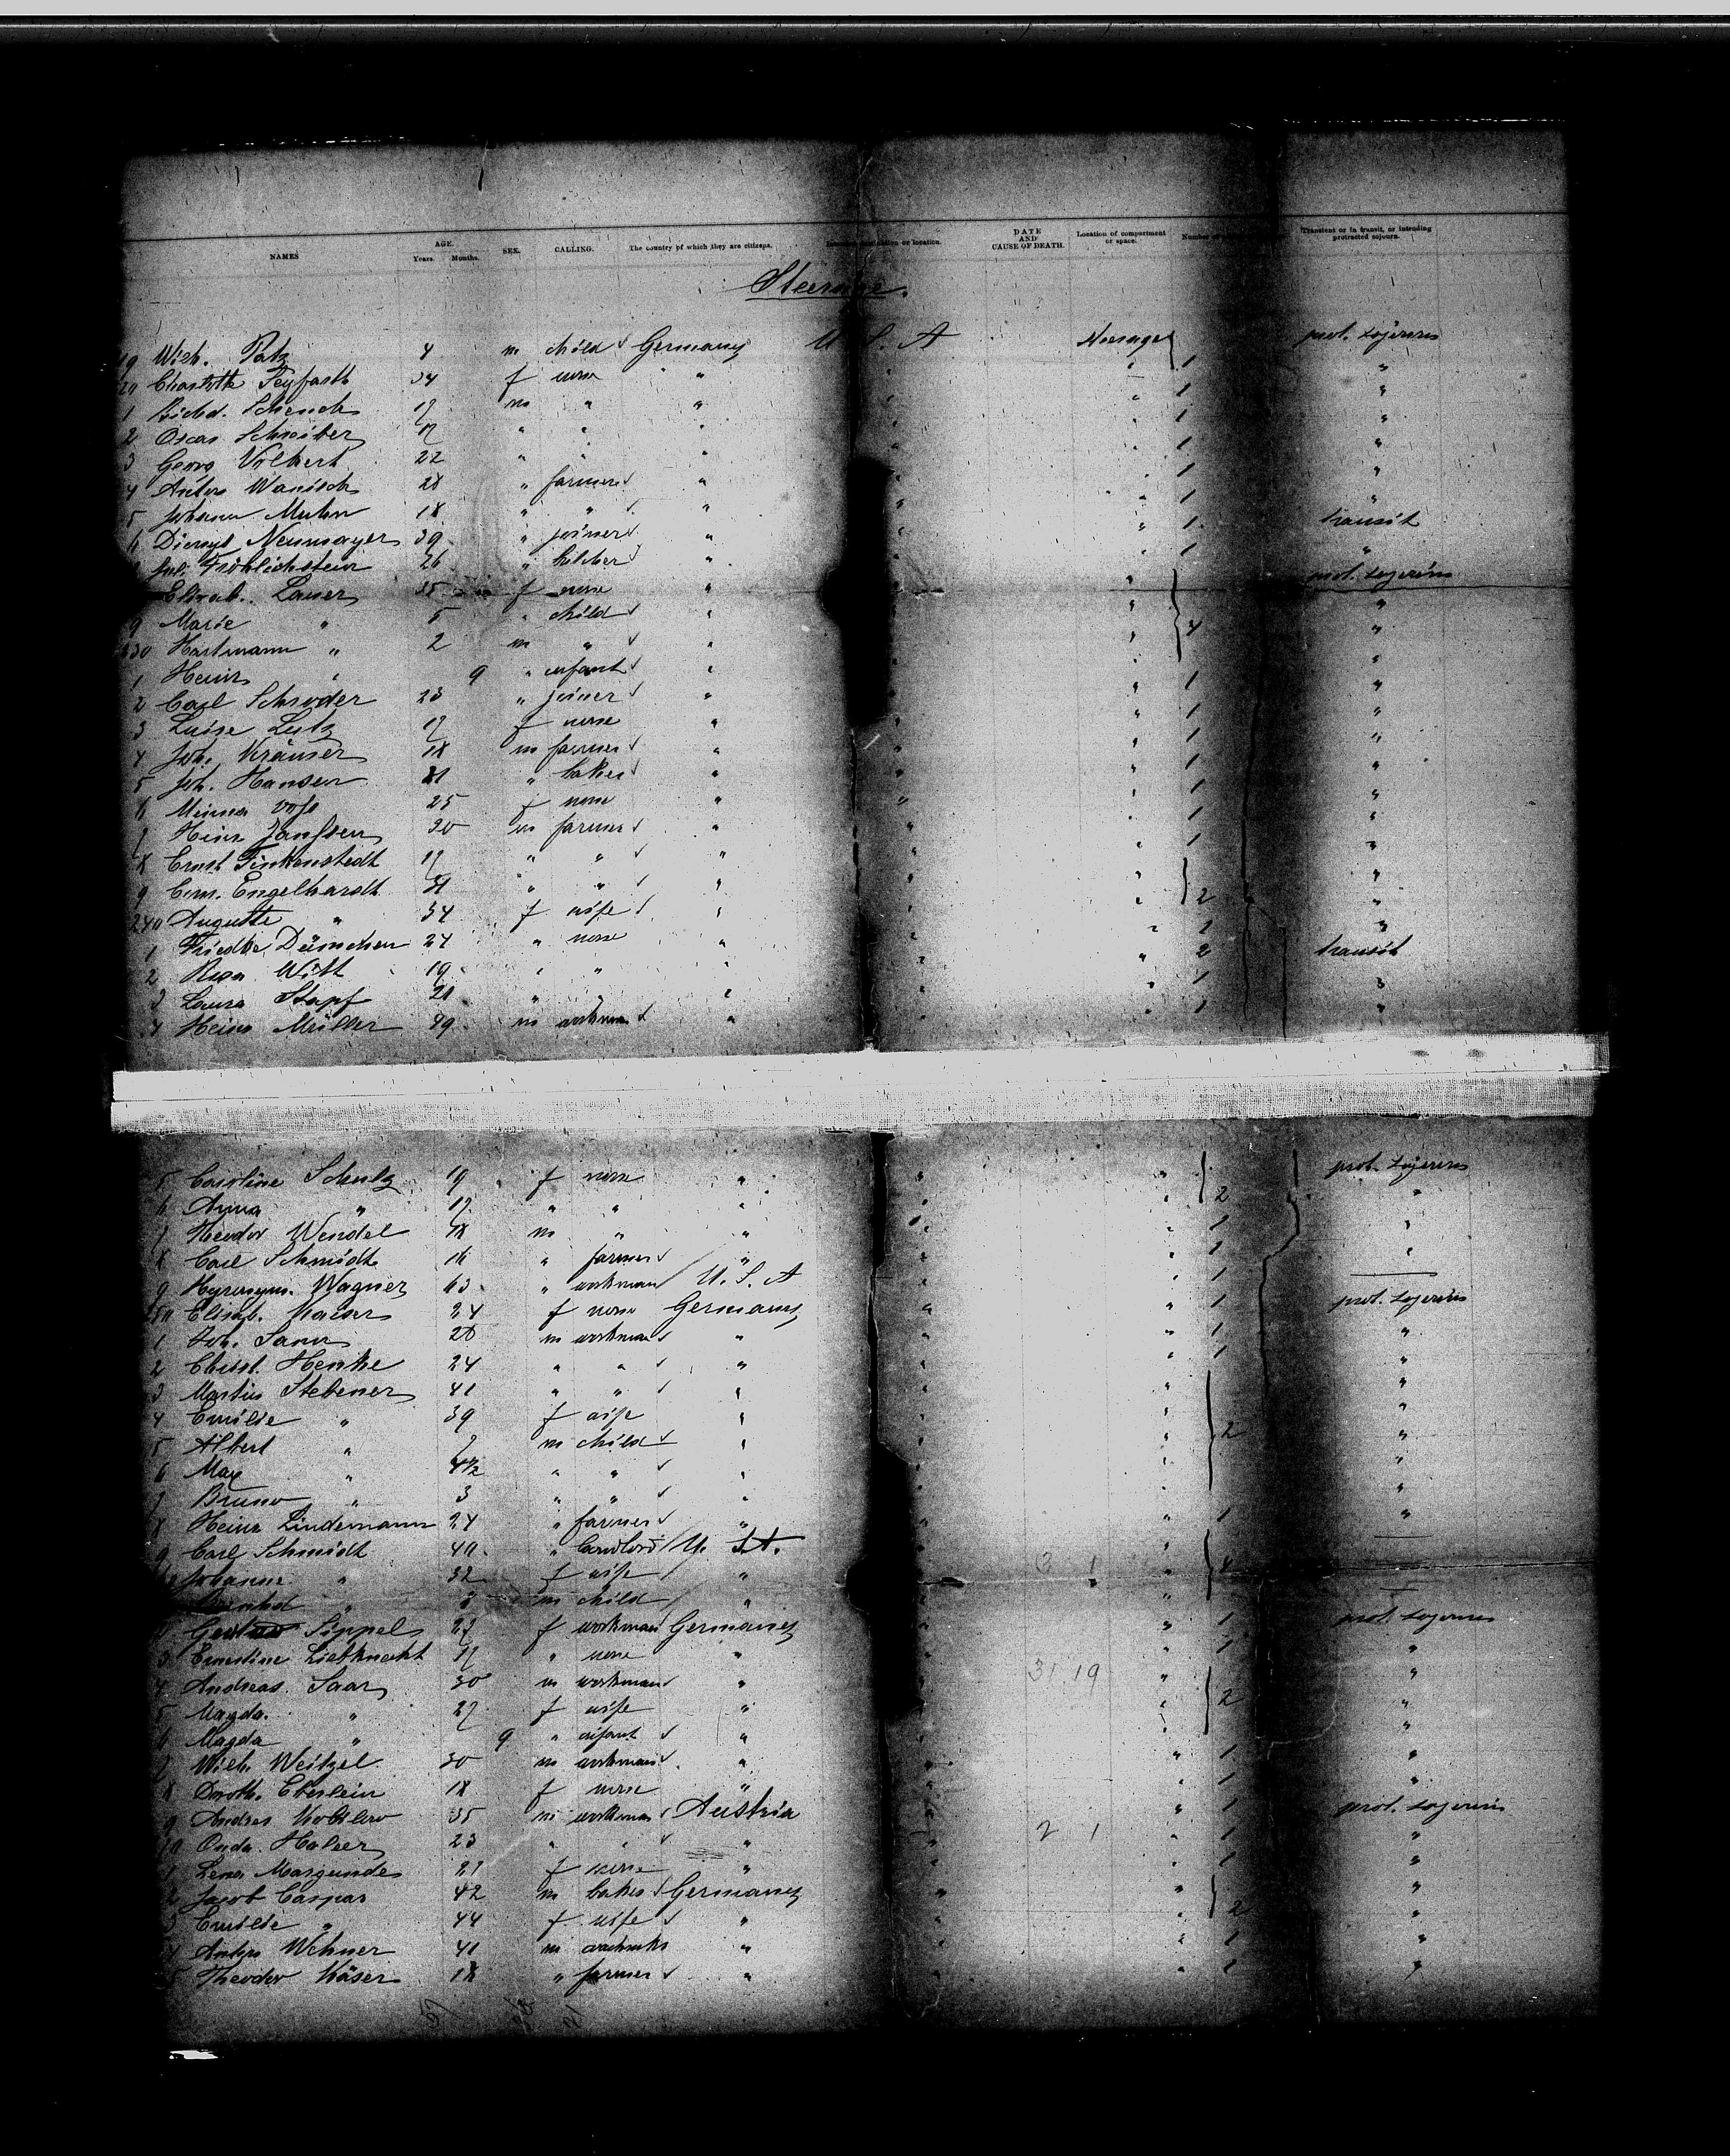 NAMES AGE. Years. Months. SEX. CALLING. The country of which they are citizens. location. DATE AND CAUSE OF DEATH. Location of compartment or space. Number of Transient or in transit, or intending protracted sojourn.
Steerage.
19 Wilh. Patz 4 m child Germany U. S. A Steerage prot. sojourn
20 Charlotte Seyfarth 34 f none " " 1 "
1 Richd. Schenck 17 m " " " 1 "
2 Oscar Schreiber 17 " " " " 1 "
3 Georg Volkert 22 " " " " 1 "
4 Anton Wanisch 28 " farmer " " 1 "
5 Johann Muhn 18 " " " " 1 "
6 Neumayer 39 " joiner " " 1 transit
Jul. Fröhlichstein 26 " " " 1 "
Elisab. Lauer 35 f none " " prot. sojourn
9 Marie " 5 " child " " "
230 Hartmann " 2 m " " " 4 "
1 Heinr. " 9 " infant " " "
2 Carl Schroder 23 " joiner " " 1 "
3 Luise Lutz 17 f none " " 1 "
4 Joh. Kräuser 18 m farmer " " 1 "
5 Joh. Hansen 21 " baker " " 1 "
6 Minna Voss 25 f none " " 1 "
7 Heinr. Janssen 30 m farmer " " 1 "
8 Ernst Finkenstedt 17 " " " " 1 "
9 Engelhardt 31 " " " " "
240 Auguste " 34 f wife " " 2 "
1 Friedke Dämchen 24 " none " " 1 "
2 Rosa Witt 19 " " " " 2 transit
3 Laura Stapf 21 " " " " 1 "
4 Heinr. Müller 49 m workman " " 1 "
5 Caroline Schulz 19 f none " " prot. sojourn
6 Anna " 17 " " " " 2 "
7 Theodor Wendel 18 m " " " 1 "
8 Carl Schmidt 16 " farmer " " 1 "
9 Wagner 63 " workman U. S. A " 1
250 Elisab. Kaiser 24 f none Germany " 1 prot. sojourn
1 Joh. Sann 28 m workman " " 1 "
2 Christ. Henke 24 " " " " 1 "
3 Martin Stebener 41 " " " " "
4 Emilie " 39 f wife " " "
5 Albert " 7 m child " " 2 "
6 Max " 4½ " " " " "
7 Bruno " 3 " " " " "
8 Heinr. Lindemann 24 " farmer " " 1 "
9 Carl Schmidt 40 " landlord U. S. A. "
Johanne " 32 f wife " 3 1 4
" 3 m child "
Sippel 27 f workman Germany 1 prot. sojourn
3 Ernestine Liebknecht 17 " none " 1 "
4 Andreas Saar 30 m workman " 31 19 "
5 Magda. " 27 f wife " 2 "
6 Magda " 9 " infant " "
7 Wilh. Weitzel 30 m workman " " 1 "
8 Doroth. Eberlein 18 f none " " 1 "
9 Andras 35 m workman Austria " 1 prot. sojourn
70 23 " " " 2 1 " 1 "
1 Lena 21 f none " " 1 "
2 Jacob Caspar 42 m baker Germany " "
3 Emilie " 44 f wife " " 2 "
4 Wehner 41 m " " 1 "
5 Theodor Käser 18 " farmer " " 1 "